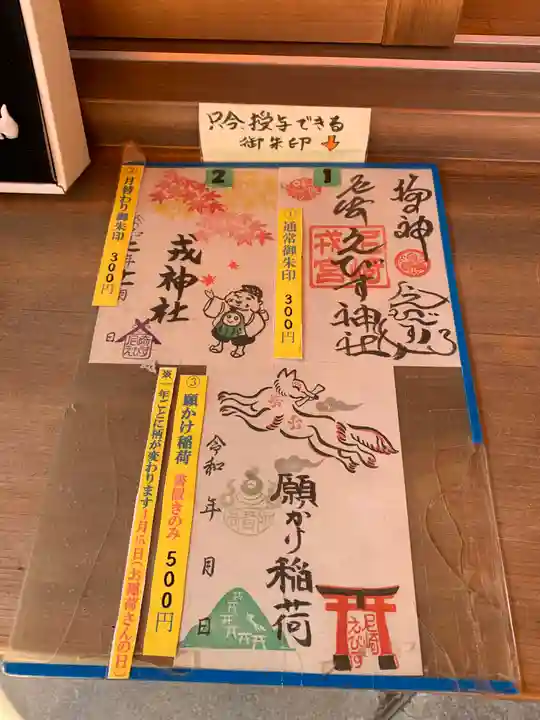 只今授与できる
御朱印 ↓
1
①通常御朱印 300円
尼崎えびす神社
戎宮
2
②月替わり御朱印 300円
戎神社
日
尼崎えびす
③願かけ稲荷 書置きのみ 500円
※一年ごとに柄が変わります
願かけ稲荷
令和 年 月 日
尼崎えびす